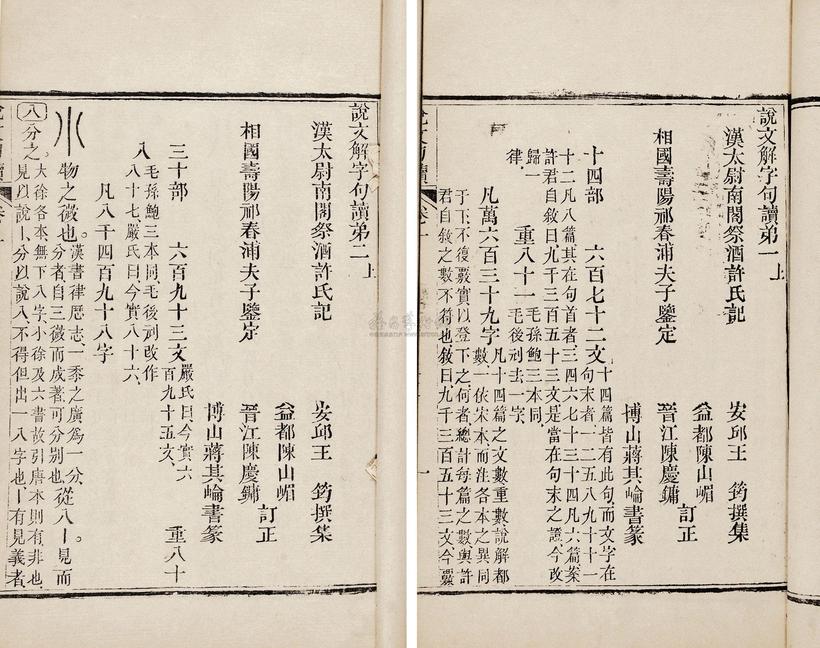 說文解字句讀弟一上
漢太尉南閣祭酒許氏記
安邱王 筠撰集
相國壽陽祁春浦夫子鑒定
益都陳山嵋
晉江陳慶鏞
訂正
博山蔣其崘書篆
十四部 六百七十二文
十四篇皆有此句而文字在
句末者一二五八九十十一
十二凡八篇其在句首者三四六七十三十四凡六篇案
許君自敘曰九千三百五十三文是當在句末之證今改
歸一
律
重八十一
毛孫鮑三本同
毛後刓去一字
凡萬六百三十九字
凡十四篇之文數重數說解都
數一依宋本而注各本之異同
于下不復覈實以登下之何者總計每篇之數與許
君自敘之數不符也敘曰九千三百五十三文今覈
說文解字句讀弟二上
漢太尉南閣祭酒許氏記
安邱王 筠撰集
相國壽陽祁春浦夫子鑒定
益都陳山嵋
晉江陳慶鏞
訂正
博山蔣其崘書篆
三十部 六百九十三文
嚴氏曰今實六
百九十五文
重八十
八
毛孫鮑三本同毛後刓改作
八十七嚴氏曰今實八十六
凡八千四百九十八字
物之微也
漢書律厯志一黍之廣為一分
分者自三微而成著可分別也
從八丨見而
八分之
大徐各本無下八字小徐及六書故引唐本則有非也
見以說丨分以說八不得但出一八字也丨有見義者